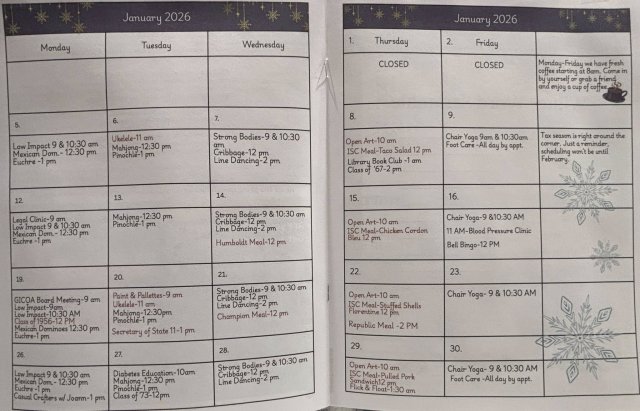 January 2026
Monday
Tuesday
Wednesday
5.
Low Impact 9 & 10:30 am
Mexican Dom.- 12:30 pm
Euchre -1 pm
6.
Ukelele-11 am
Mahjong-12:30 pm
Pinochle-1 pm
7.
Strong Bodies-9 & 10:30
am
Cribbage-12 pm
Line Dancing-2 pm
12.
Legal Clinic-9 am
Low Impact 9 & 10:30 am
Mexican Dom.- 12:30 pm
Euchre -1 pm
13.
Mahjong-12:30 pm
Pinochle-1 pm
14.
Strong Bodies-9 & 10:30 am
Cribbage-12 pm
Line Dancing-2 pm
Humboldt Meal-12 pm
19.
GICOA Board Meeting-9 am
Low Impact-9am
Low Impact-10:30 AM
Class of 1956-12 PM
Mexican Dominoes 12:30 pm
Euchre-1 pm
20.
Paint & Pallettes-9 am
Ukelele-11 am
Mahjong-12:30pm
Pinochle-1 pm
Secretary of State 11-1 pm
21.
Strong Bodies-9 & 10:30 am
Cribbage-12 pm
Line Dancing-2 pm
Champion Meal-12 pm
26.
Low Impact 9 & 10:30 am
Mexican Dom.- 12:30 pm
Euchre -1 pm
Casual Crafters w/ Joann-1 pm
27.
Diabetes Education-10am
Mahjong-12:30 pm
Pinochle-1 pm
Class of 73-12pm
28.
Strong Bodies-9 & 10:30 am
Cribbage-12 pm
Line Dancing-2 pm
January 2026
1. Thursday
2. Friday
CLOSED
CLOSED
Monday-Friday we have fresh
coffee starting at 8am. Come in
by yourself or grab a friend
and enjoy a cup of coffee.
8.
Open Art-10 am
ISC Meal-Taco Salad 12 pm
Library Book Club -1 am
Class of '67-2 pm
9.
Chair Yoga 9am & 10:30am
Foot Care -All day by appt.
Tax season is right around the
corner. Just a reminder,
scheduling won't be until
February.
15.
Open Art-10 am
ISC Meal-Chicken Cordon
Bleu 12 pm
16.
Chair Yoga-9 &10:30 AM
11 AM-Blood Pressure Clinic
Bell Bingo-12 PM
22.
Open Art-10 am
ISC Meal-Stuffed Shells
Florentine 12 pm
Republic Meal -2 PM
23.
Chair Yoga- 9 & 10:30 AM
29.
Open Art-10 am
ISC Meal-Pulled Pork
Sandwich12 pm
Flick & Float-1:30 am
30.
Chair Yoga- 9 & 10:30 AM
Foot Care -All day by appt.